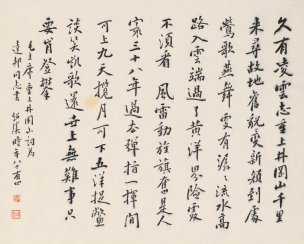 久有凌雲志重上井岡山千里
来尋故地舊貌變新顏到處
鶯歌燕舞更有潺〻流水高
路入雲端過了黄洋界險處
不須看 風雷動旌旗奮是人
寰三十八年過去彈指一揮間
可上九天攬月可下五洋捉鱉
談笑凱歌還世上無難事只
要肯登攀
毛主席重上井岡山詞為
達邦同志書 時年八十有四